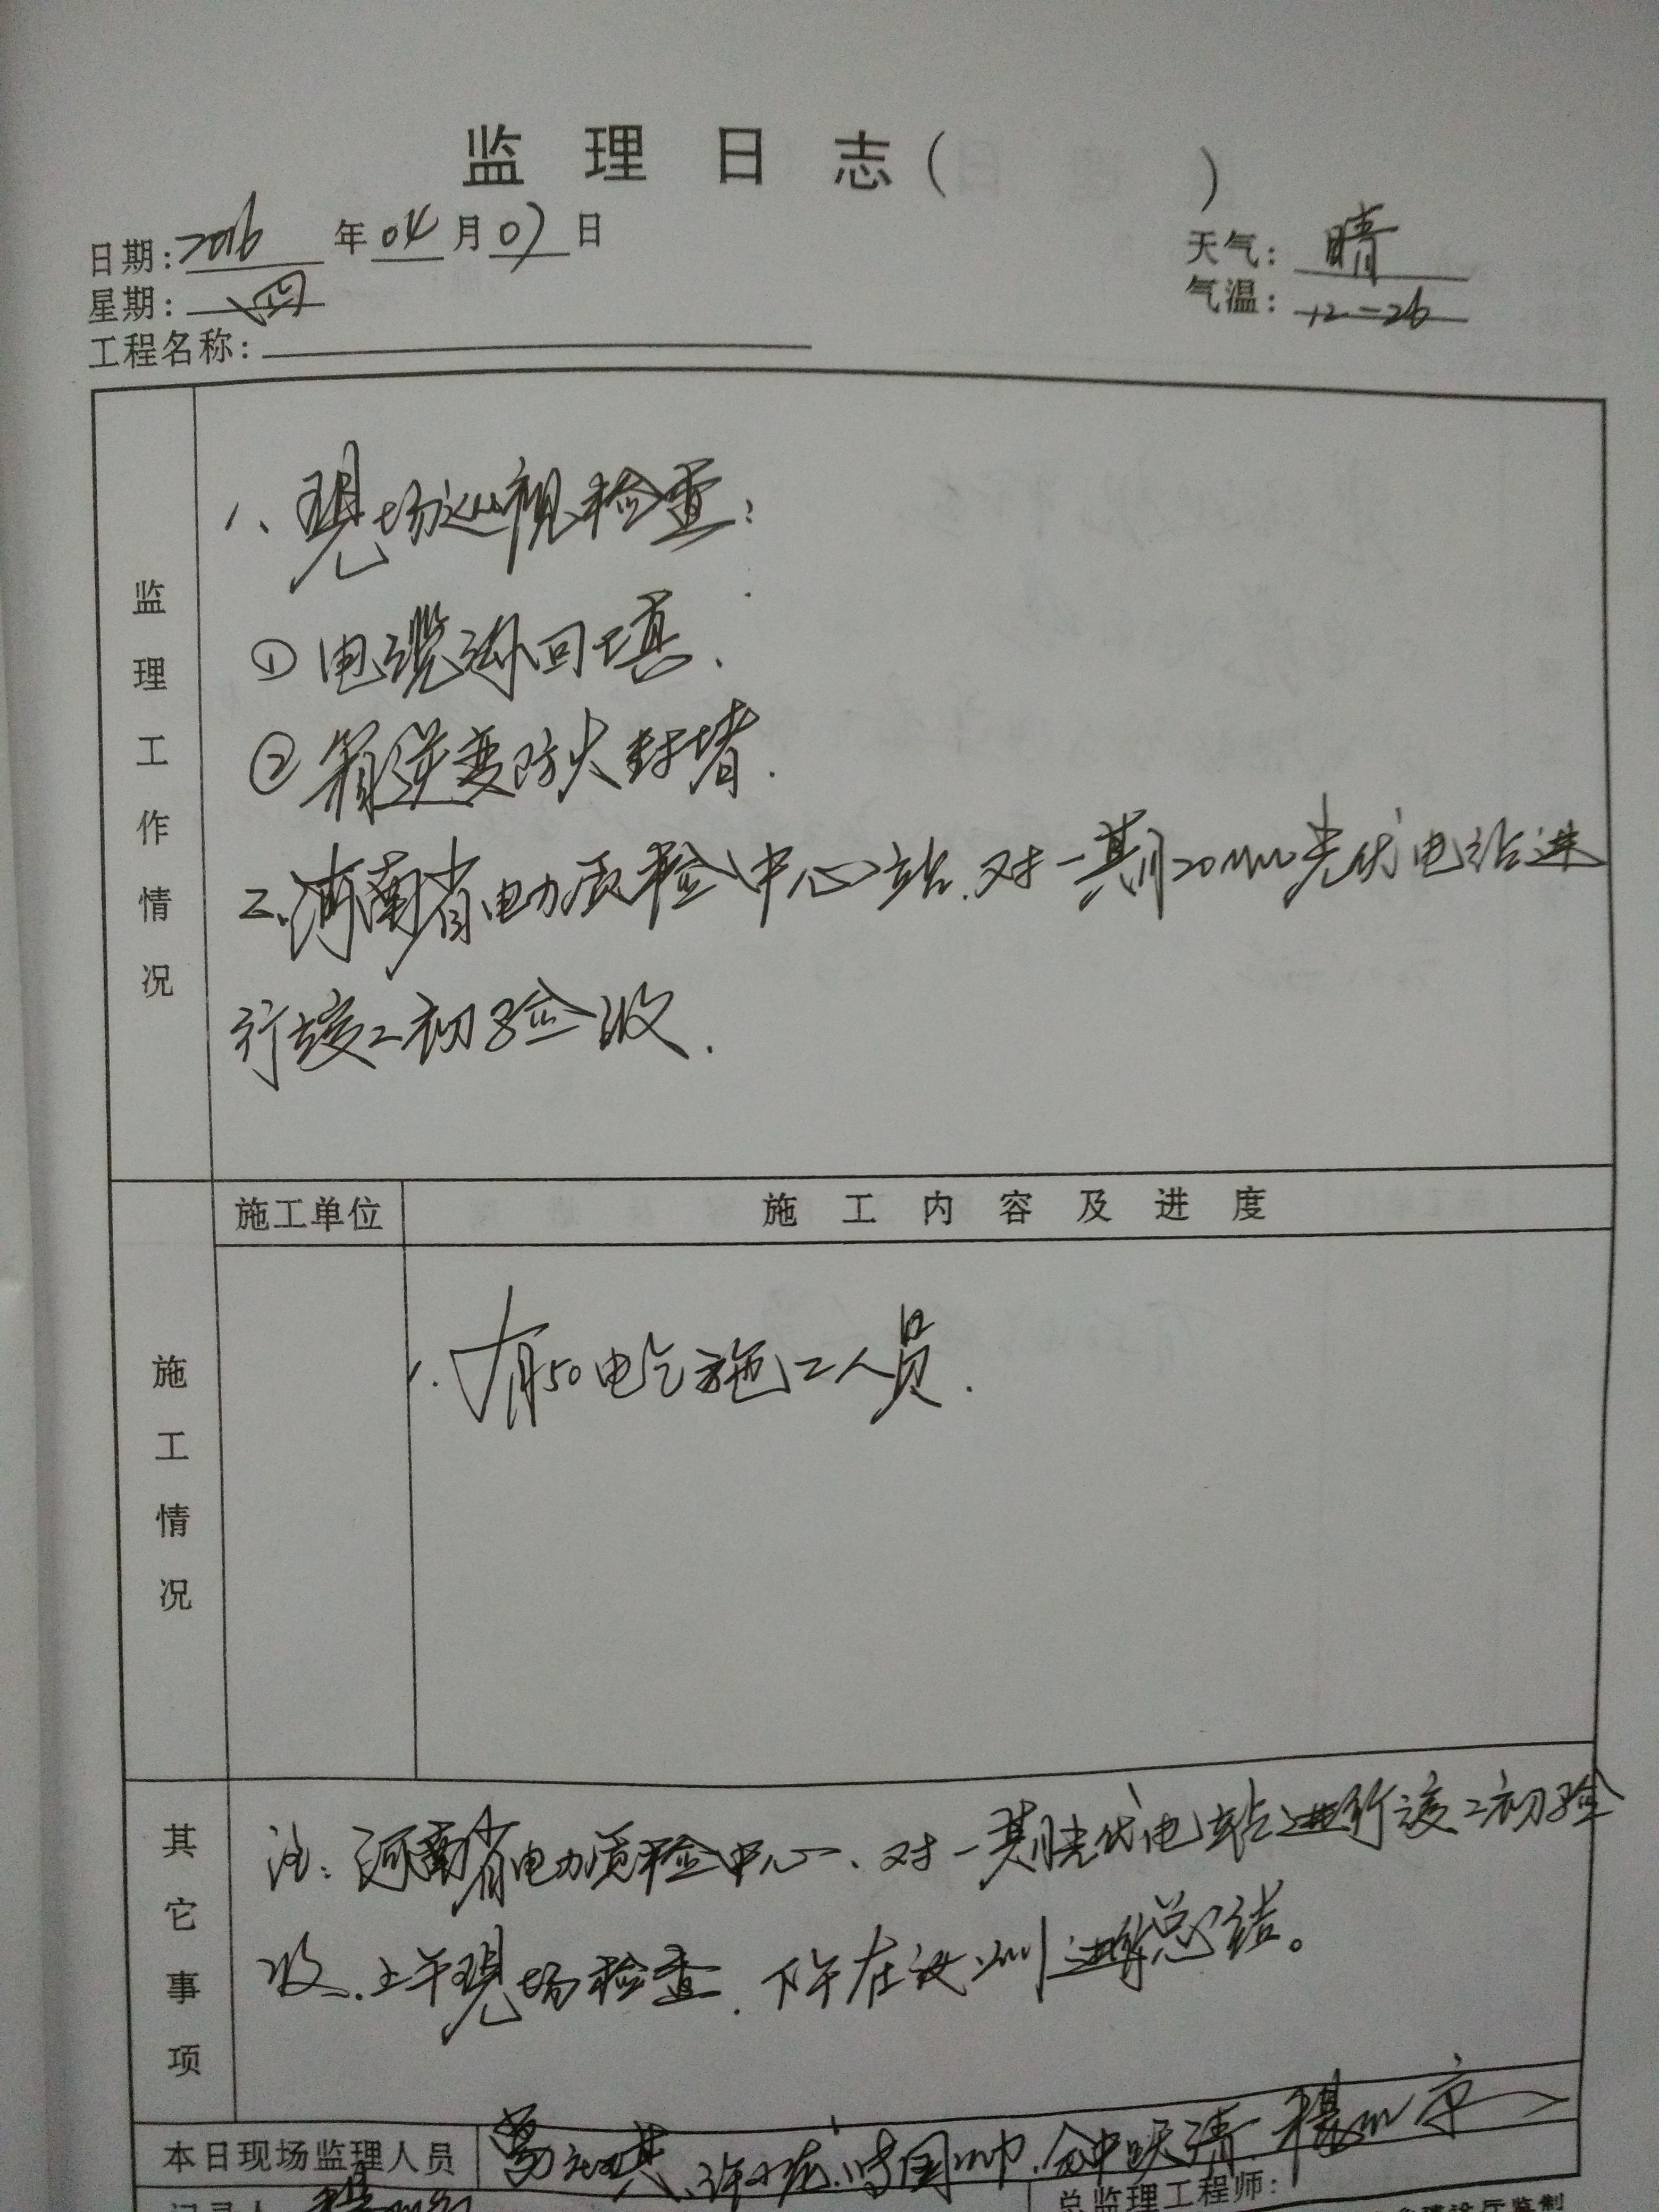 监理日志( )
日期:2016年04月07日
天气:晴
星期:四
气温:12-26
工程名称:
监理工作情况
1、现场巡视检查:
①电缆沟回填.
②箱逆变防火封堵.
2、河南省电力质检中心站.对一期20MW光伏电站进
行竣工初验收.
施工单位
施工内容及进度
施工情况
1.有50电气施工人员.
其它事项
注:河南省电力质检中心、对一期光伏电站进行竣工初验
收.上午现场检查.下午在汝州进行总结。
本日现场监理人员
记录人
总监理工程师:
建设厅监制